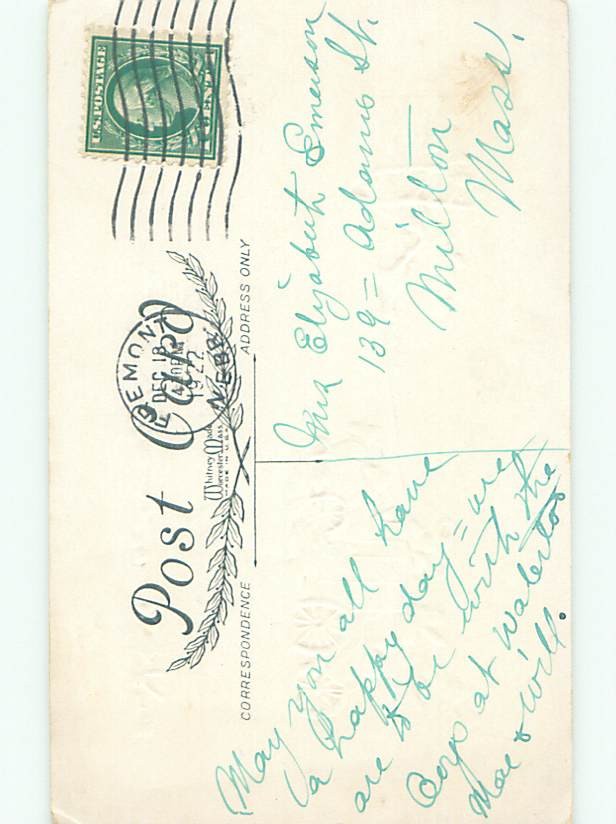 Post Card
Whitney Made
Worcester, Mass
MADE IN U.S.A.
CORRESPONDENCE
ADDRESS ONLY
U.S. POSTAGE
DEC 18
1922
NEBR.
May you all have
a happy day = we
are to be with the
Boys at Waterloo
Mae & Will.
Mrs Elizabeth Emerson
139 = Adams St.
Milton
Mass.